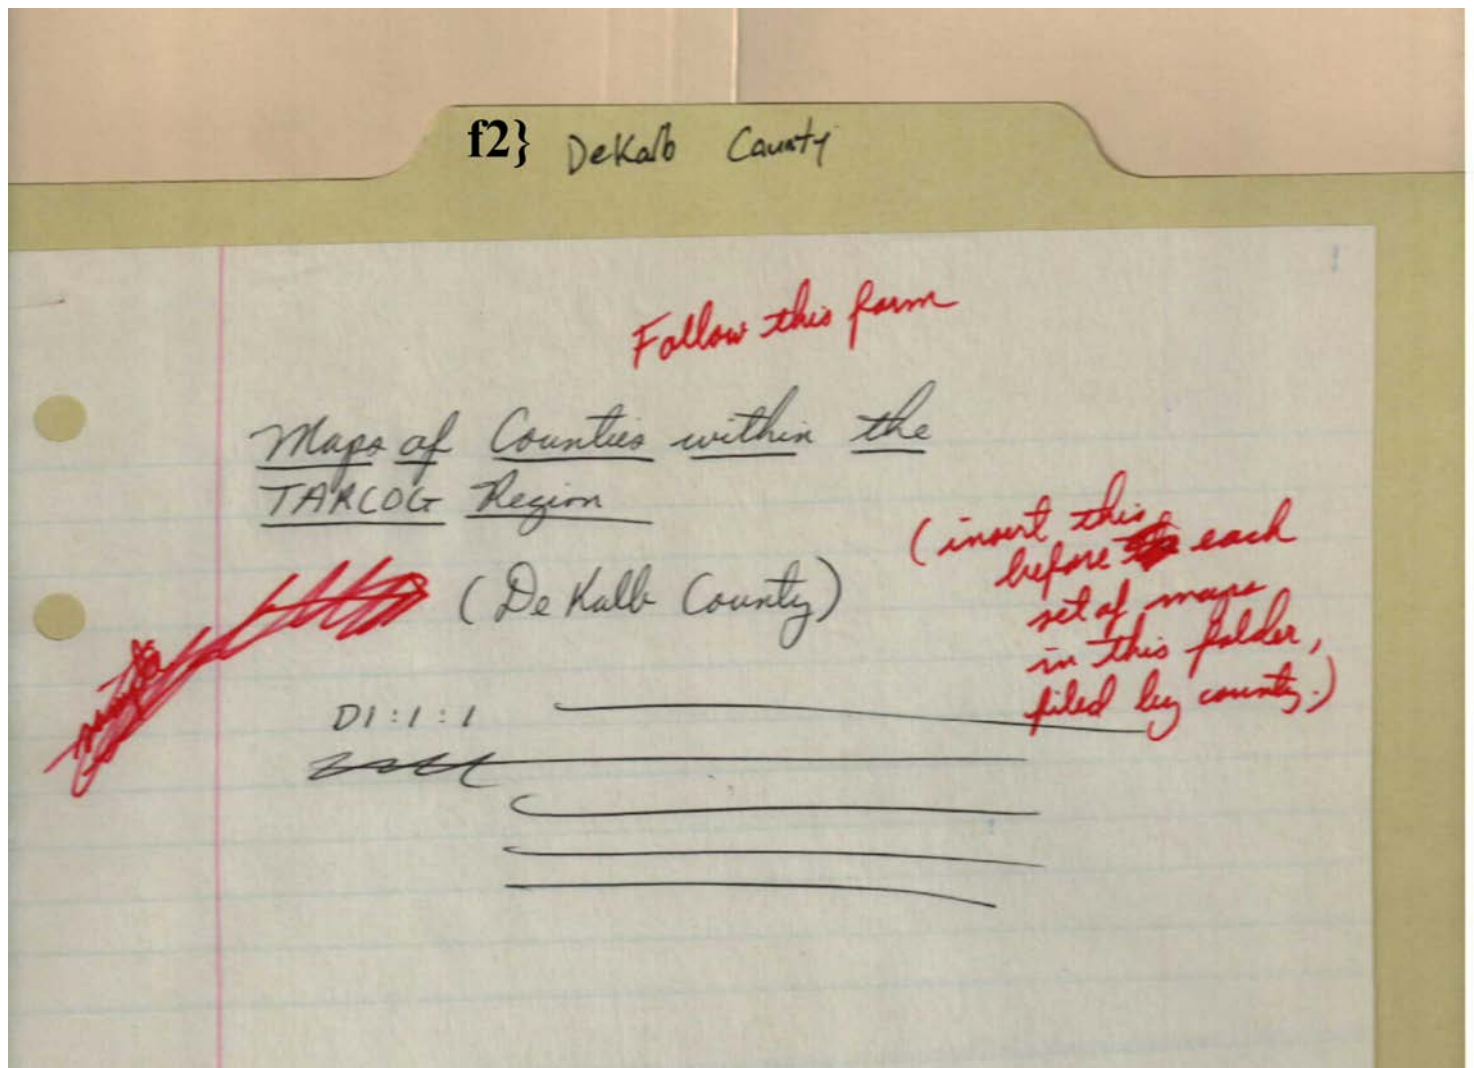 f2} DeKalb County
Follow this form
Maps of Counties within the
TARCOG Region
(insert this
before each
set of maps
in this folder,
filed by county.)
(DeKalb County)
D1:1:1